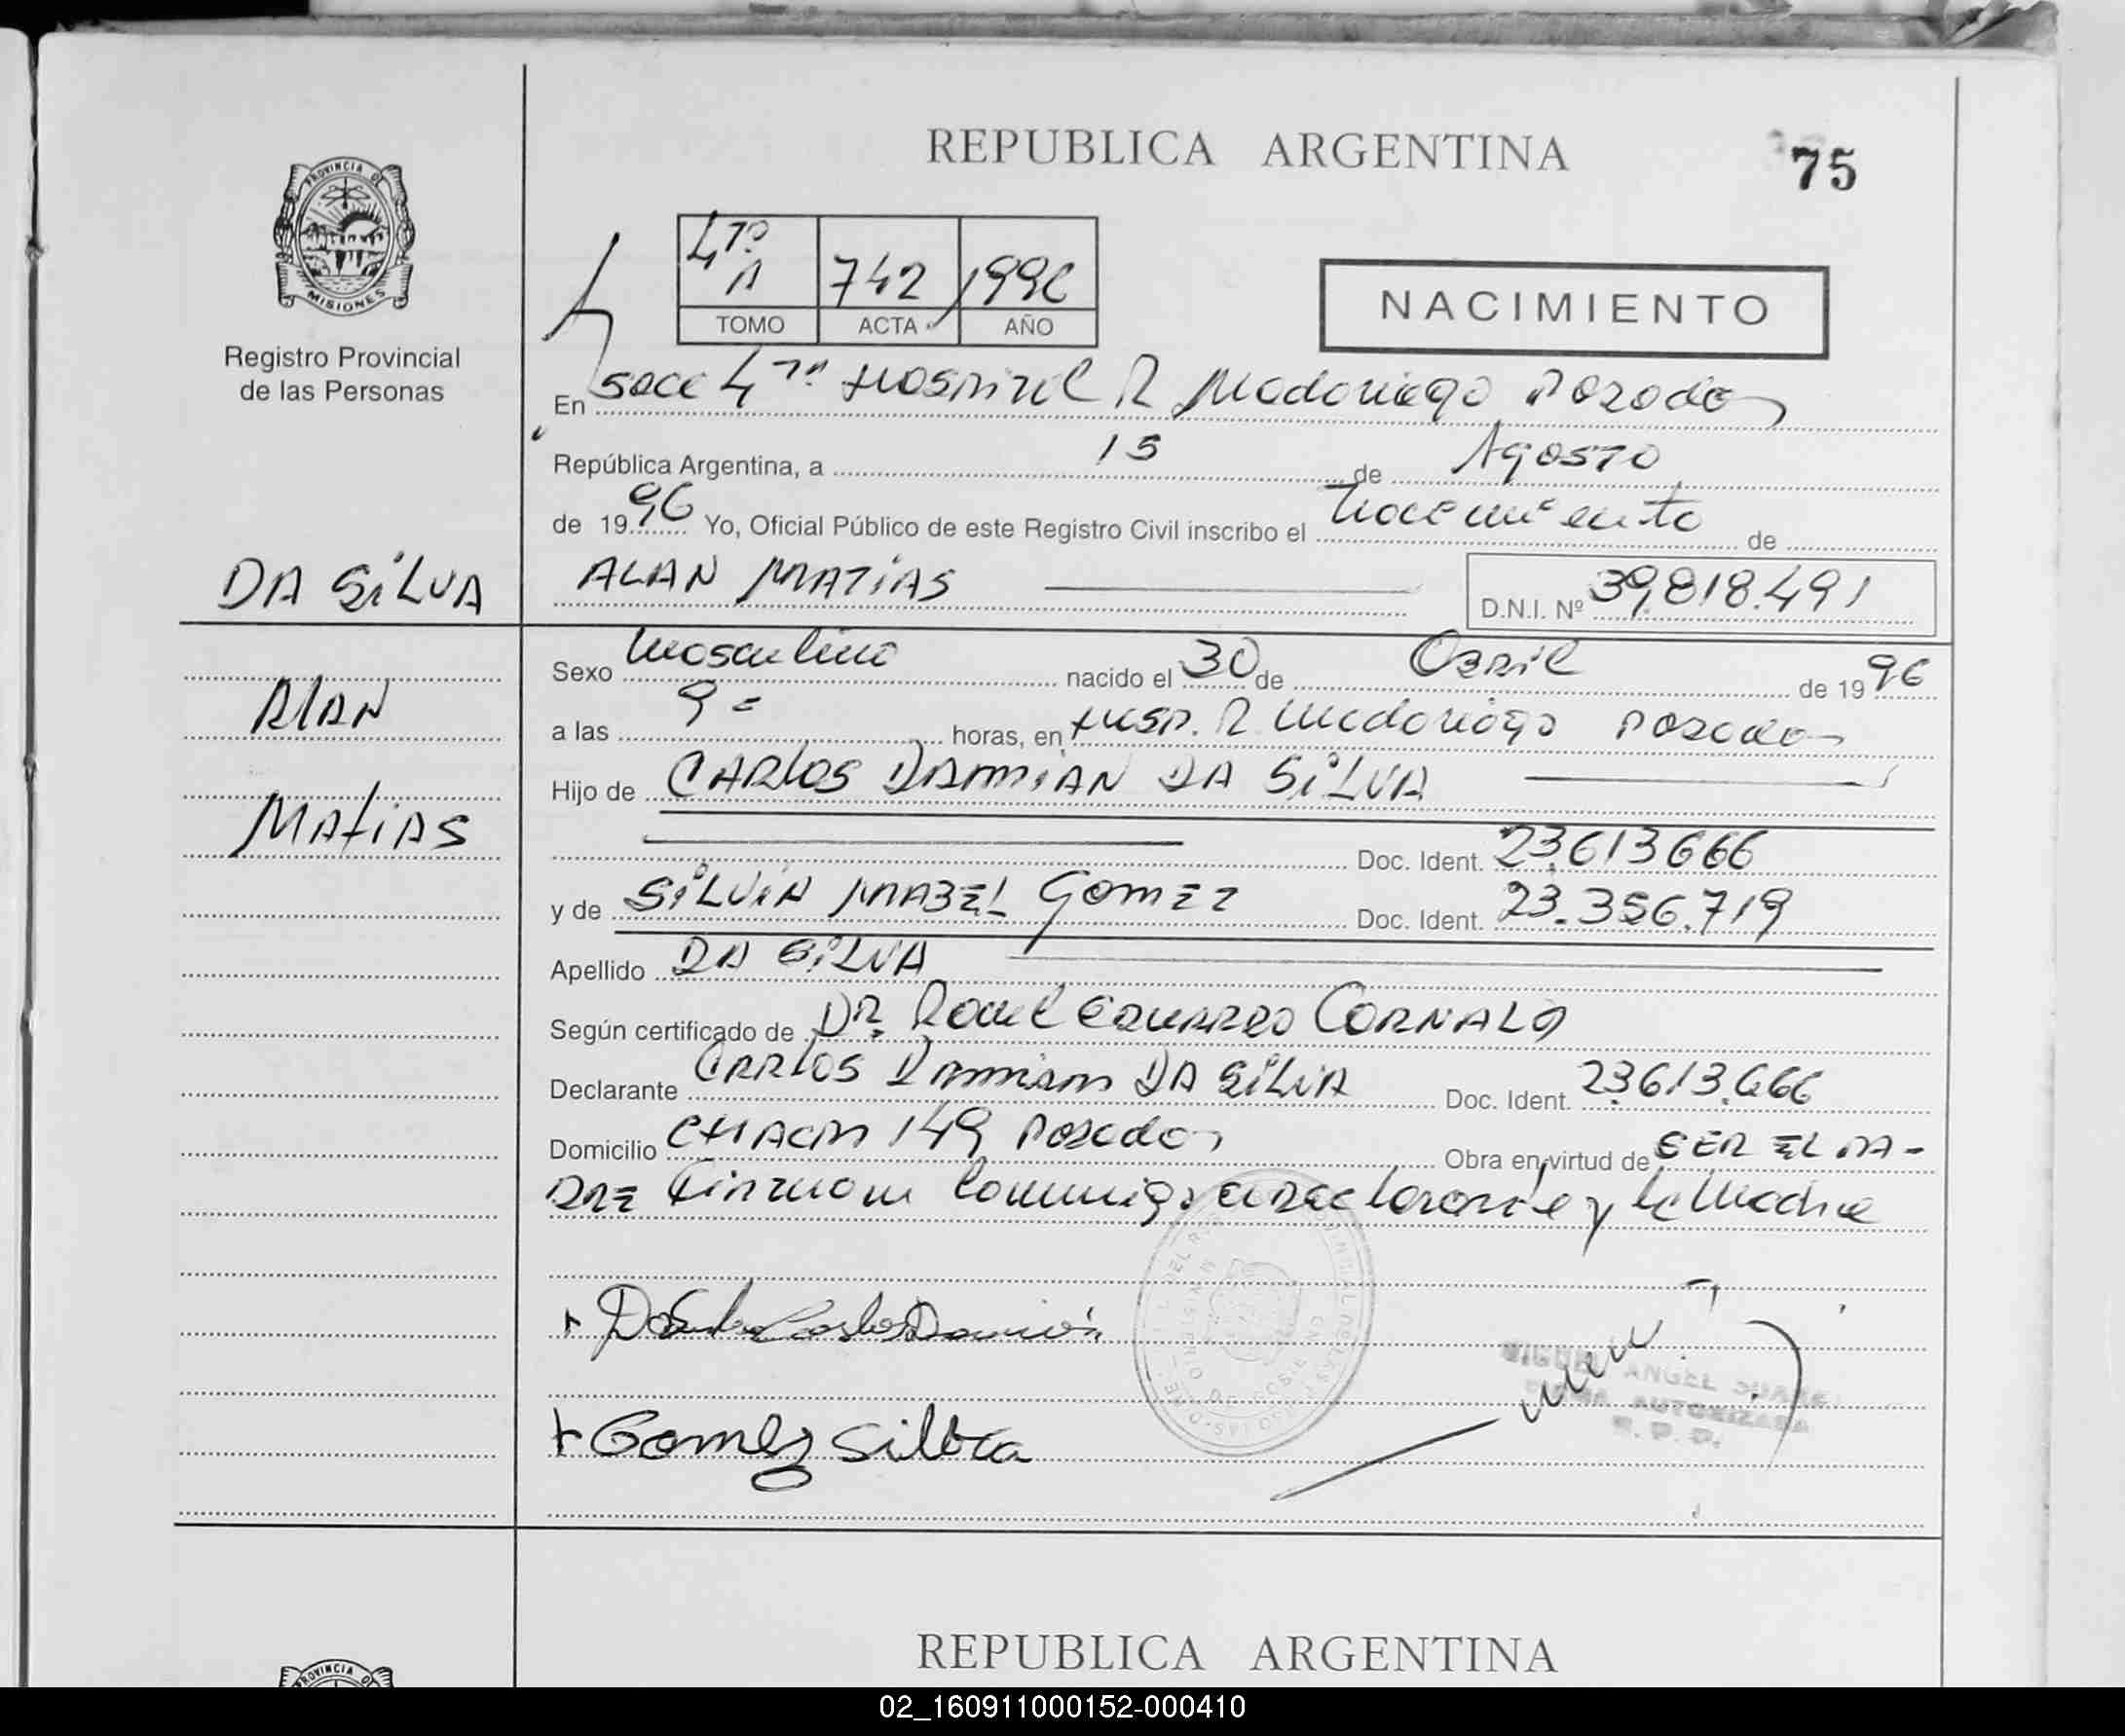 REPUBLICA ARGENTINA
75
PROVINCIA DE
MISIONES
Registro Provincial
de las Personas
4ta A 742 1996
TOMO ACTA AÑO
NACIMIENTO
En Secc 4ta Hospital R Madariaga Posadas
República Argentina, a 15 de Agosto
de 1996 Yo, Oficial Público de este Registro Civil inscribo el nacimiento de
DA SILVA
ALAN MATIAS
D.N.I. Nº 39.818.491
Alan
Matias
Sexo masculino nacido el 30 de Abril de 1996
a las 9= horas, en Hosp. R Madariaga Posadas
Hijo de CARLOS DAMIAN DA SILVA
Doc. Ident. 23.613666
y de SILVIA MABEL GOMEZ Doc. Ident. 23.356.719
Apellido DA SILVA
Según certificado de Dr. Raul Eduardo CORNALO
Declarante CARLOS DAMIAN DA SILVA Doc. Ident. 23.613.666
Domicilio 149 Posadas Obra en virtud de SER EL PA-
DRE Firman conmigo el declarante y la Madre
Da Silva Carlos Damián
Gomez Silvia
MIGUEL ANGEL
FIRMA AUTORIZADA
R. P. P.
REPUBLICA ARGENTINA
PROVINCIA
02_160911000152-000410